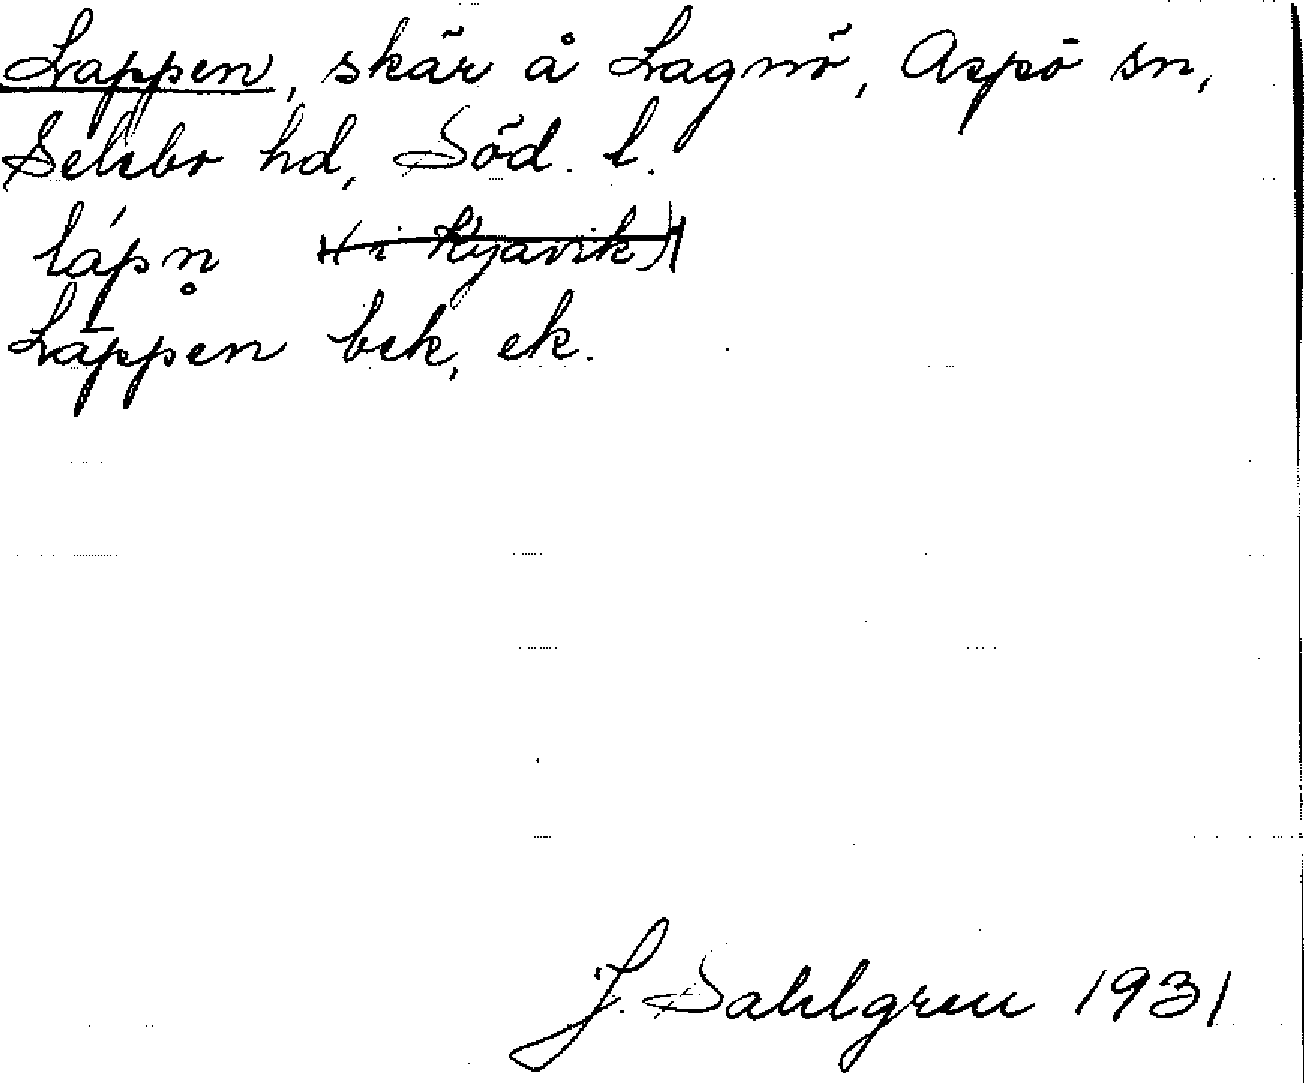 Lappen, skär å Lagnö, Aspö sn,
Selebo hd, Söd. l.
lápn̥ (i Ryavik)
Lappen bek, ek.
J. Sahlgren 1931